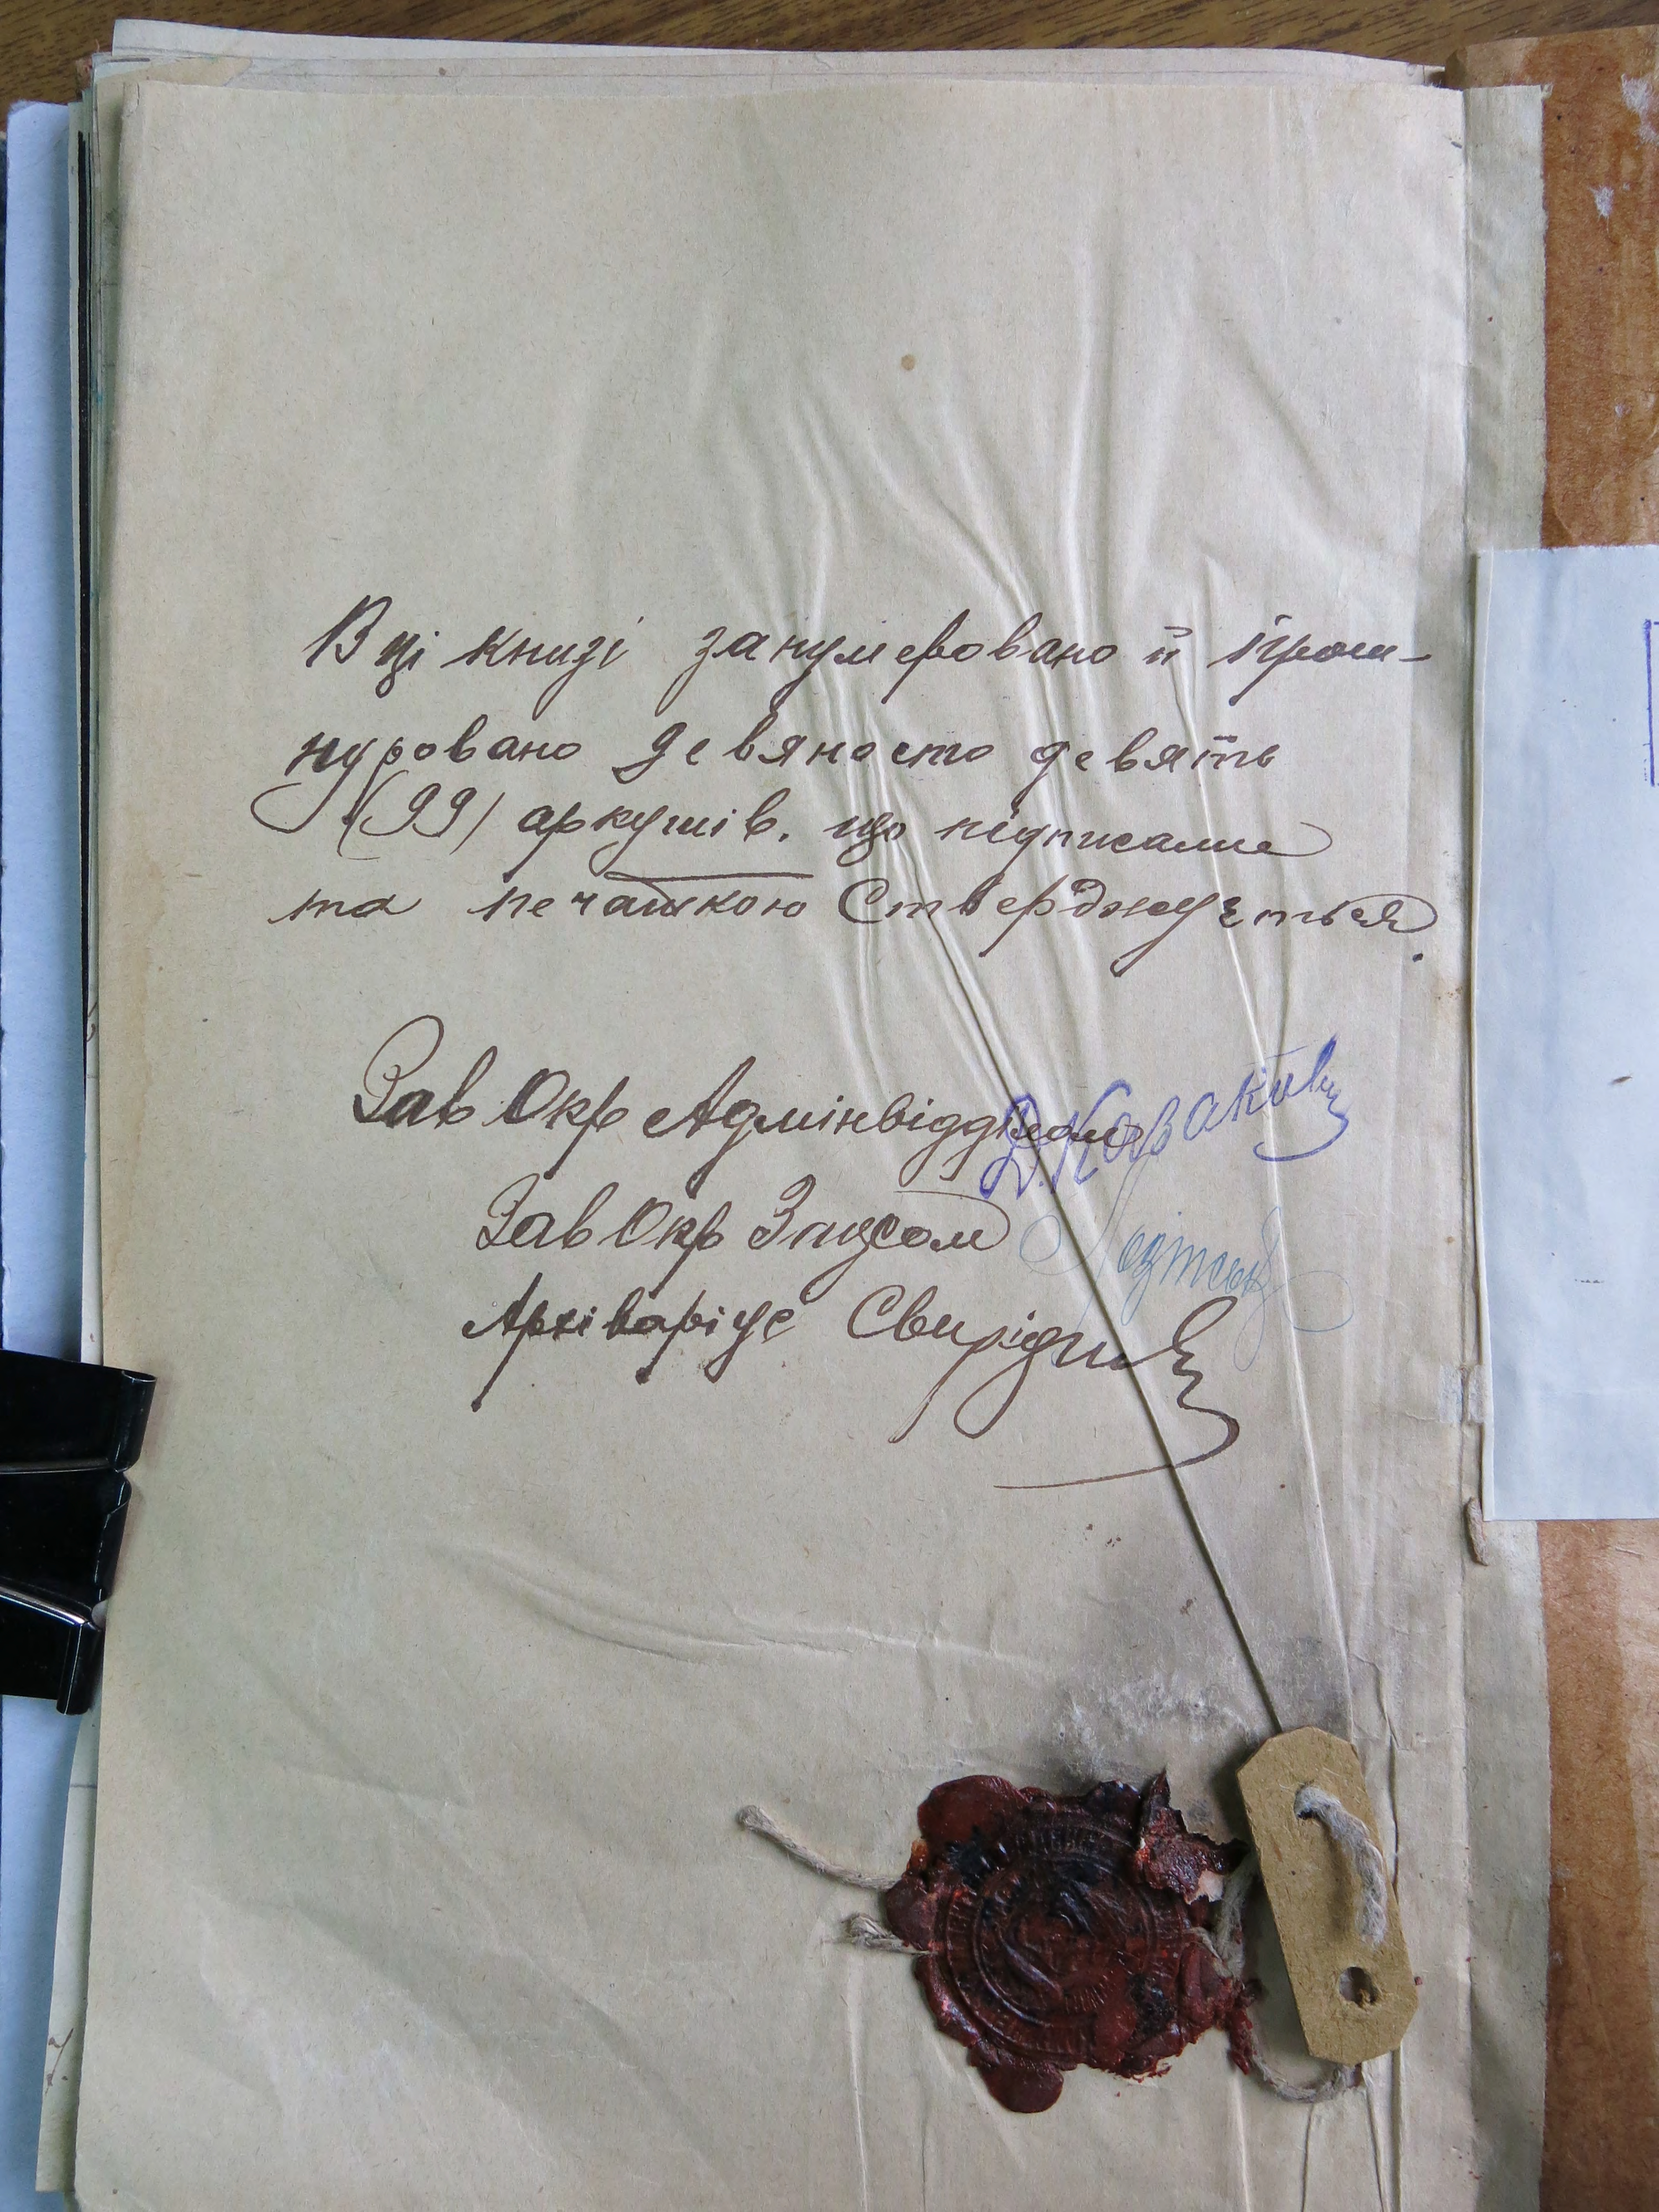 В ці книзі занумеровано й прош-
нуровано девяносто девять
(99) аркушів. що підписами
та печаткою Стверджуеться.
Зав Окр Адмінвідділом Д. Козакевич
Зав Окр Загсом
Архіваріус Свиридич